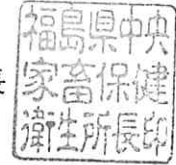 福島県中央
家畜保健
衛生所長印